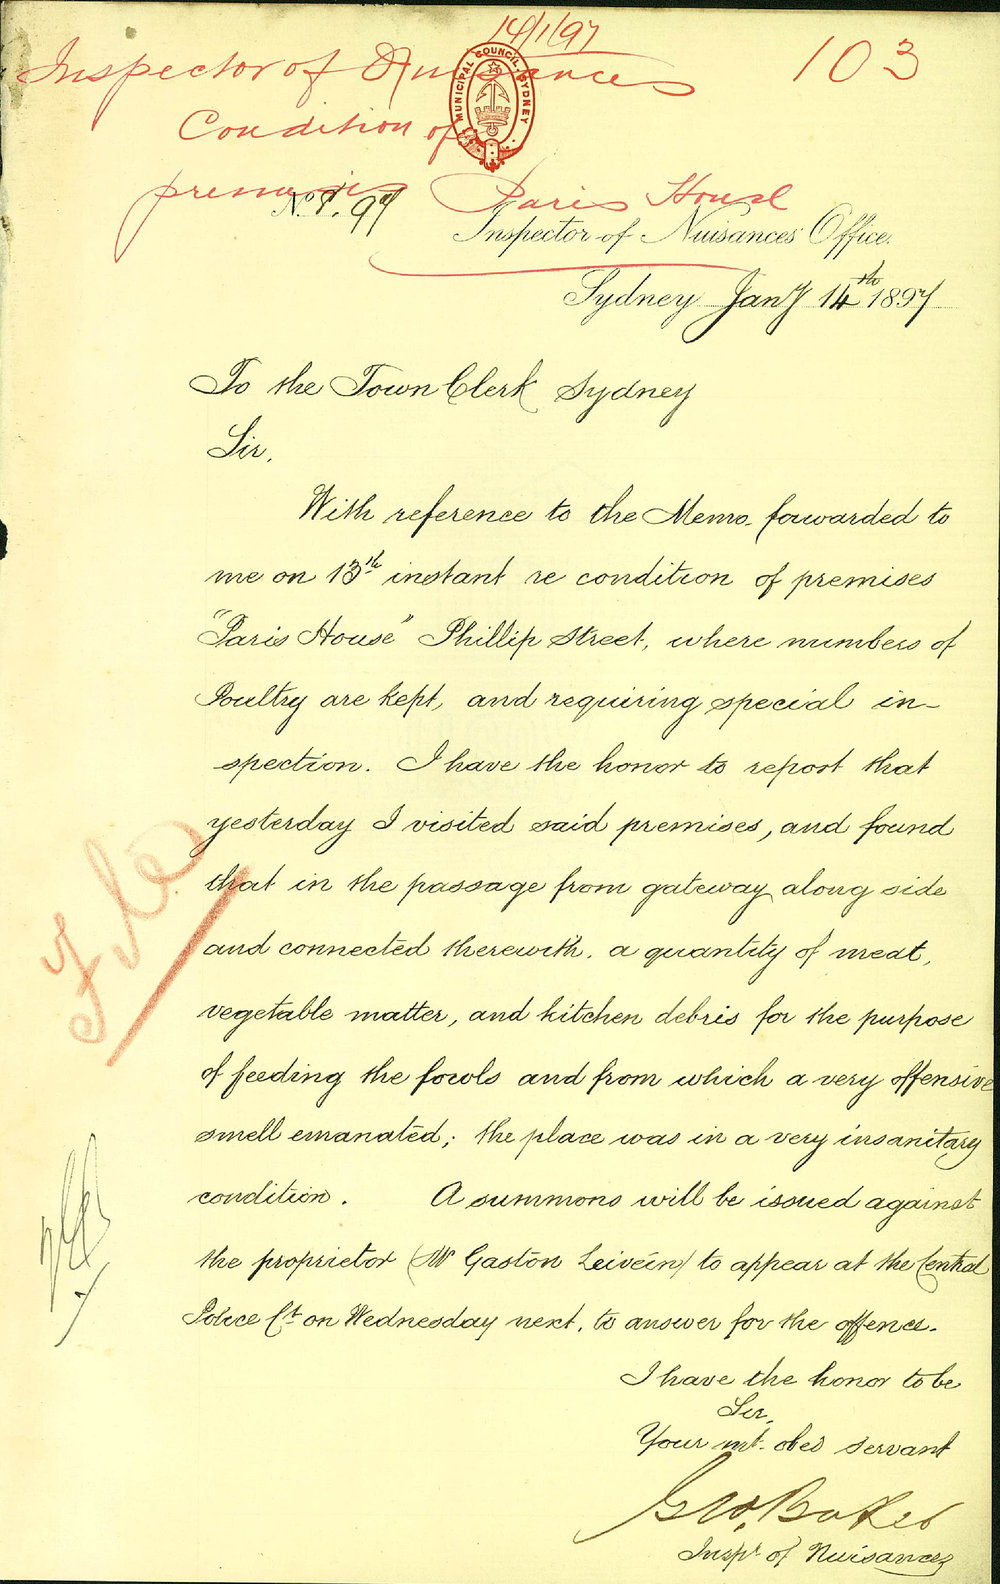 14/1/97
Inspector of Nuisances 103
MUNICIPAL COUNCIL, SYDNEY
Condition of
premises Paris House
No. 8. 97
Inspector of Nuisances' Office.
Sydney Jany 14th 1897
To the Town Clerk Sydney
Sir,
With reference to the Memo. forwarded to
me on 13th instant re condition of premises
"Paris House" Phillip Street, where numbers of
Poultry are kept, and requiring special in-
spection. I have the honor to report that
yesterday I visited said premises, and found
that in the passage from gateway along side
and connected therewith. a quantity of meat,
vegetable matter, and kitchen debris for the purpose
of feeding the fowls and from which a very offensive
smell emanated; the place was in a very insanitary
condition. A summons will be issued against
the proprietor (Mr Gaston Leivein) to appear at the Central
Police Ct on Wednesday next, to answer for the offence.
I have the honor to be
Sir,
Your mt. obed servant
Geo. Baker
Inspr of Nuisances
File